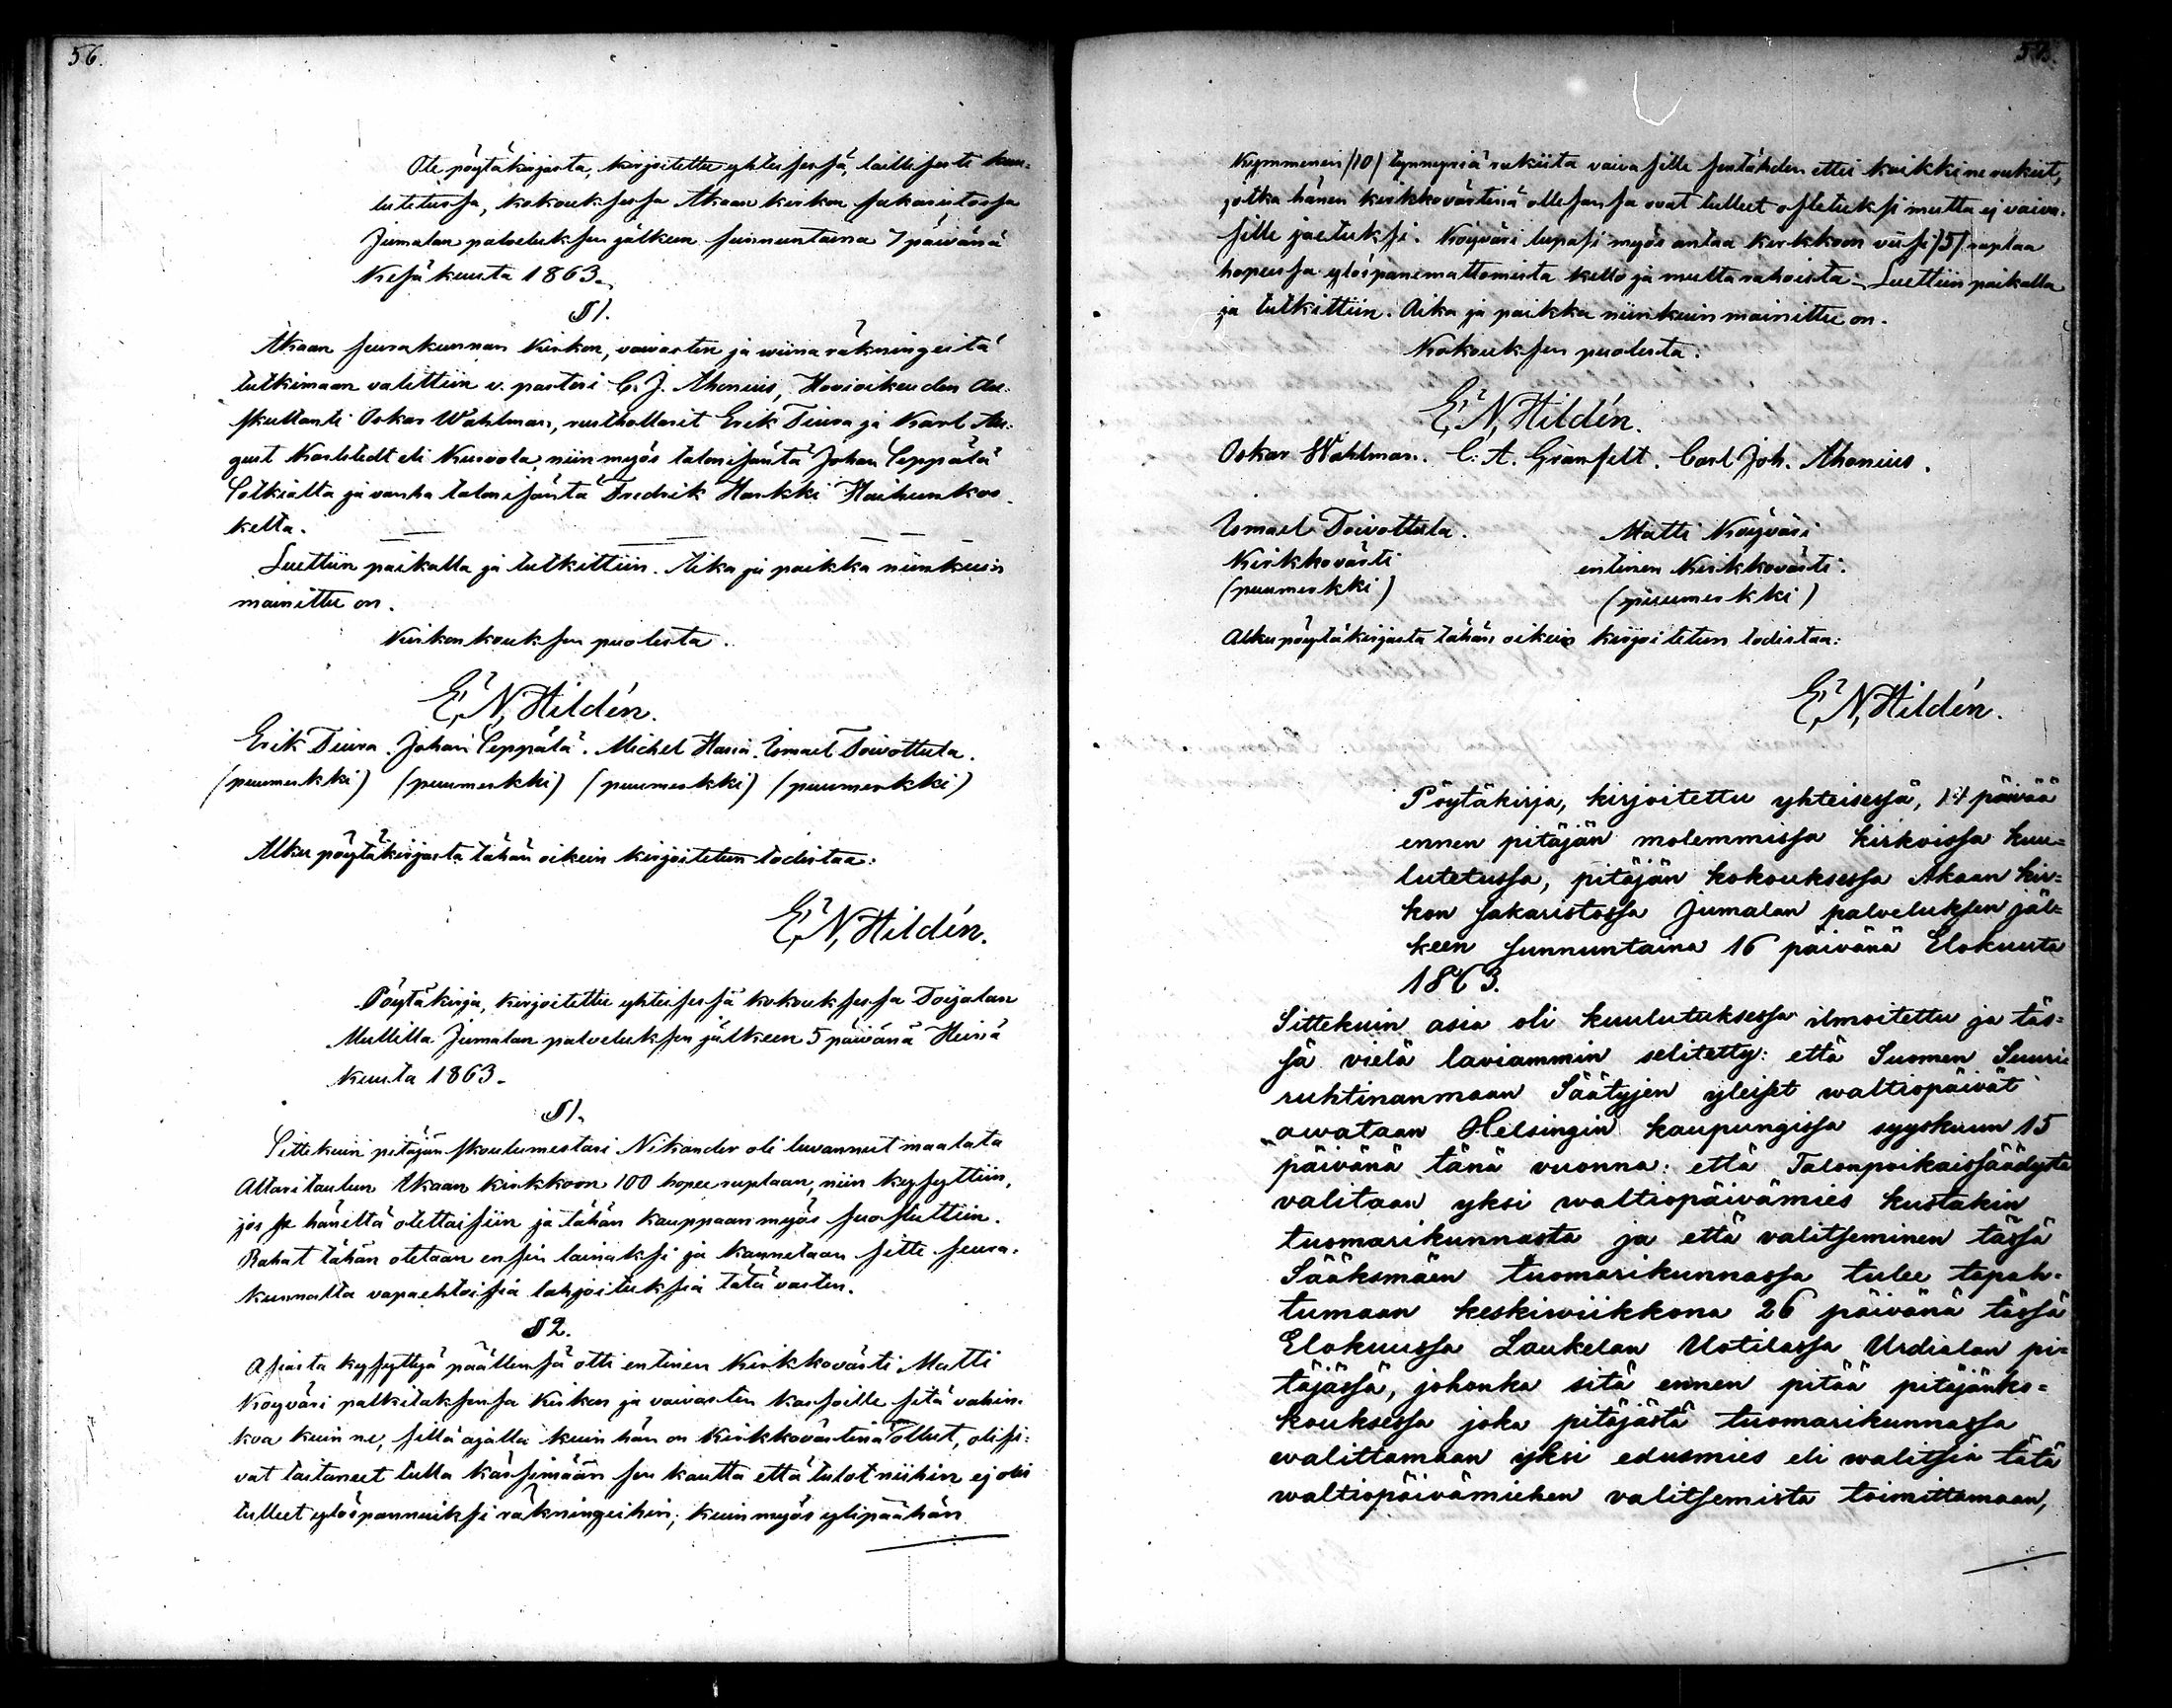 56.
Ote pöytäkirjasta, kirjoitettu yhteisessä, laillisesti kuu-
lutetussa, kokouksessa Akaan kirkon sakaristossa
Jumalan palveluksen jälkeen sunnuntaina 7 päivänä
Kesäkuuta 1863.
§ 1.
Akaan seurakunnan Kirkon, vaivasten ja wiina räkningeitä
tutkimaan valittiin v. pastori C. J. Ahonius, Hovioikeuden Au-
skultanti Oskar Wahlman, rusthollarit Erik Teura ja Karl Au-
gust Karlstedt eli Kurvola, niin myös talonisäntä Johan Leppälä
Sotkialta ja vanha talonisäntä Fredrik Harkki Haihunkos-
kelta.
Luettiin paikalla ja tutkittiin. Aika ja paikka niinkuin
mainittu on.
Kirkonkouksen puolesta.
E. N. Hildén.
Erik Teura. Johan Leppälä. Michel Harri. Ismael Toivottula.
(puumerkki) (puumerkki) (puumerkki) (puumerkki)
Alku pöytäkirjasta tähän oikein kirjoitetun todistaa:
E. N. Hildén.
Pöytäkirja, kirjoitettu yhteisessä kokouksessa Toijalan
Mullilla Jumalan palveluksen jälkeen 5 päivänä Heinä
kuuta 1863.
§ 1.
Sittekuin pitäjän skoulumestari Nikander oli luvannut maalata
Altaritaulun Akaan kirkkoon 100 hopee ruplaan, niin kysyttiin,
jos se häneltä otettaisiin ja tähän kauppaan myös suostuttiin.
Rahat tähän otetaan ensin lainaksi ja kannetaan sitte seura-
kunnalta vapaehtoisia lahjoituksia tätä vasten.
§ 2.
Asiasta kysyttyä päällensä otti entinen Kirkkovärti Matti
Kroyväri palkitaksensa Kirkon ja vaivasten Kassoille sitä vahin-
koa kuin ne, sillä ajalla kuin hän on Kirkkovärtinä ollut, olisi-
vat taitaneet tulla kärsimään sen kautta että tulot niihin ej ole
tulleet ylöspannuiksi räkningeihin; kuin myös ylipäähän
Kymmenen /10/ tynnyriä rukiita vaivasille sentähden ettei kaikki ne rukiit,
jotka hänen kirkkovärtinä ollesansa ovat tulleet ostetuksi mutta ej vaiva-
sille jaetuksi. Kroyväri lupasi myös antaa kirkkoon viisi /5/ ruplaa
hopeessa ylöspanemattomista kello ja multa rahoista. Luettiin paikalla
ja tutkittiin. Aika ja paikka niinkuin mainittu on.
Kokouksen puolesta.
E. N. Hildén.
Oskar Wahlman. C. A. Granfelt. Carl Joh. Ahonius.
Ismael Toivottula. Matti Kroyväri
Kirkkovärti entinen Kirkkovärti.
(puumerkki) (puumerkki)
Alkupöytäkirjasta tähän oikein kirjoitetun todistaa:
E. N. Hildén.
Pöytäkirja, kirjoitettu yhteisessä, 14 päivää
ennen pitäjän molemmissa kirkoissa kuu-
lutetussa, pitäjän kokouksessa Akaan kir-
kon sakaristossa Jumalan palveluksen jäl-
keen sunnuntaina 16 päivänä Elokuuta
1863.
Sittekuin asia oli kuulutuksessa ilmoitettu ja täs-
sä vielä laviammin selitetty: että Suomen Suuri-
ruhtinanmaan Säätyjen yleiset waltiopäivät
awataan Helsingin kaupungissa syyskuun 15
päivänä tänä vuonna: että Talonpoikaissäädystä
valitaan yksi waltiopäivämies kustakin
tuomarikunnasta ja että valitseminen tässä
Sääksmäen tuomarikunnassa tulee tapah-
tumaan keskiwiikkona 26 päivänä tässä
Elokuussa Laukelan Uotilassa Urdialan pi-
täjässä, johonka sitä ennen pitää pitäjänko-
kouksessa joka pitäjästä tuomarikunnassa
walittamaan yksi edusmies eli walitsia tätä
waltiopäivämiehen valitsemista toimittamaan,